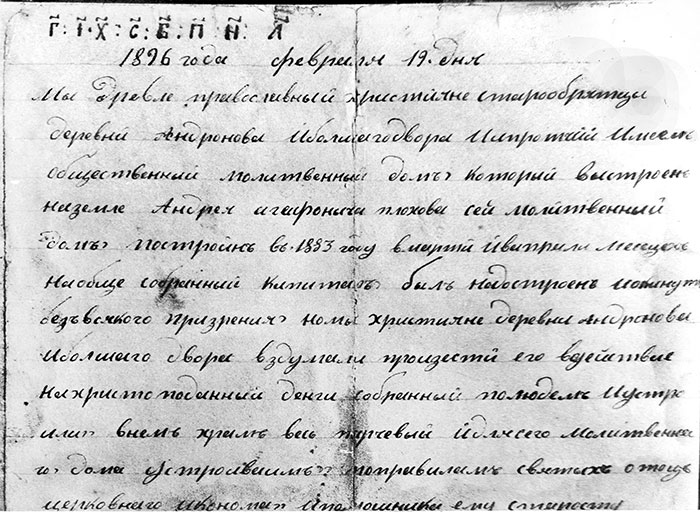 Г: І· Х: С: Б: П: Н: Л
1896 года февраля 19. дня
Мы Древле православный християне старообрятцы
деревни Андронова Иболшагодвора Ипротчий Имеем
общественный молитвенный домъ который выстроенъ
наземле Андрея агафонича плохова сей молитвенный
домъ построинъ въ 1883 году вмарти Ивапрели месецехъ
наобще собранный Капиталъ былъ недостроенъ ипокинутъ
безъвсякого призрения номы християне деревни Андронова
Иболшаго двора вздумали произвести его вдействие
Нахристо поданный денги собранный полюдемъ Иустро
или внемъ храмъ весь парчевый Идлясего молитвенна
го дома устроиваимъ поправиламъ святыхъ отецъ
церковнаго иконома ипомошника ему старосту